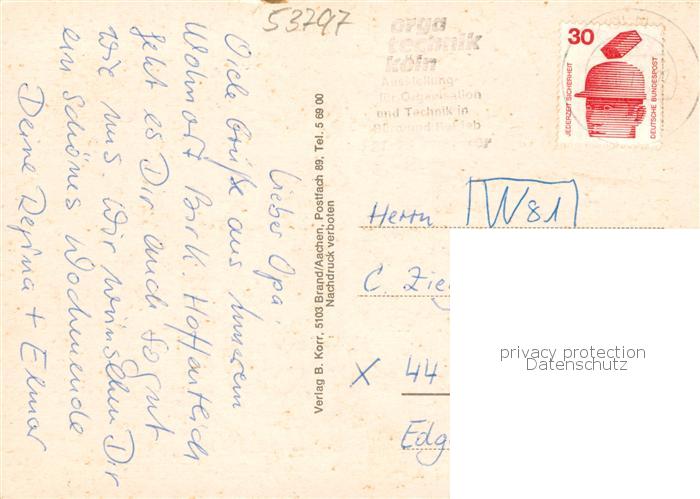 53797
Lieber Opa!
Viele Grüße aus unserem
Wohnort Bork. Hoffentlich
geht es Dir auch so gut
wie uns. Wir wünschen Dir
ein schönes Wochenende
Deine Regina + Elmar
Verlag B. Korr, 5103 Brand/Aachen, Postfach 89, Tel. 5 69 00
Nachdruck verboten
orga
technik
köln
Ausstellung
für Organisation
und Technik in
Büro und Betrieb
30
JEDERZEIT SICHERHEIT
DEUTSCHE BUNDESPOST
Herrn W81
C. Zie
X 44
Edg
privacy protection
Datenschutz